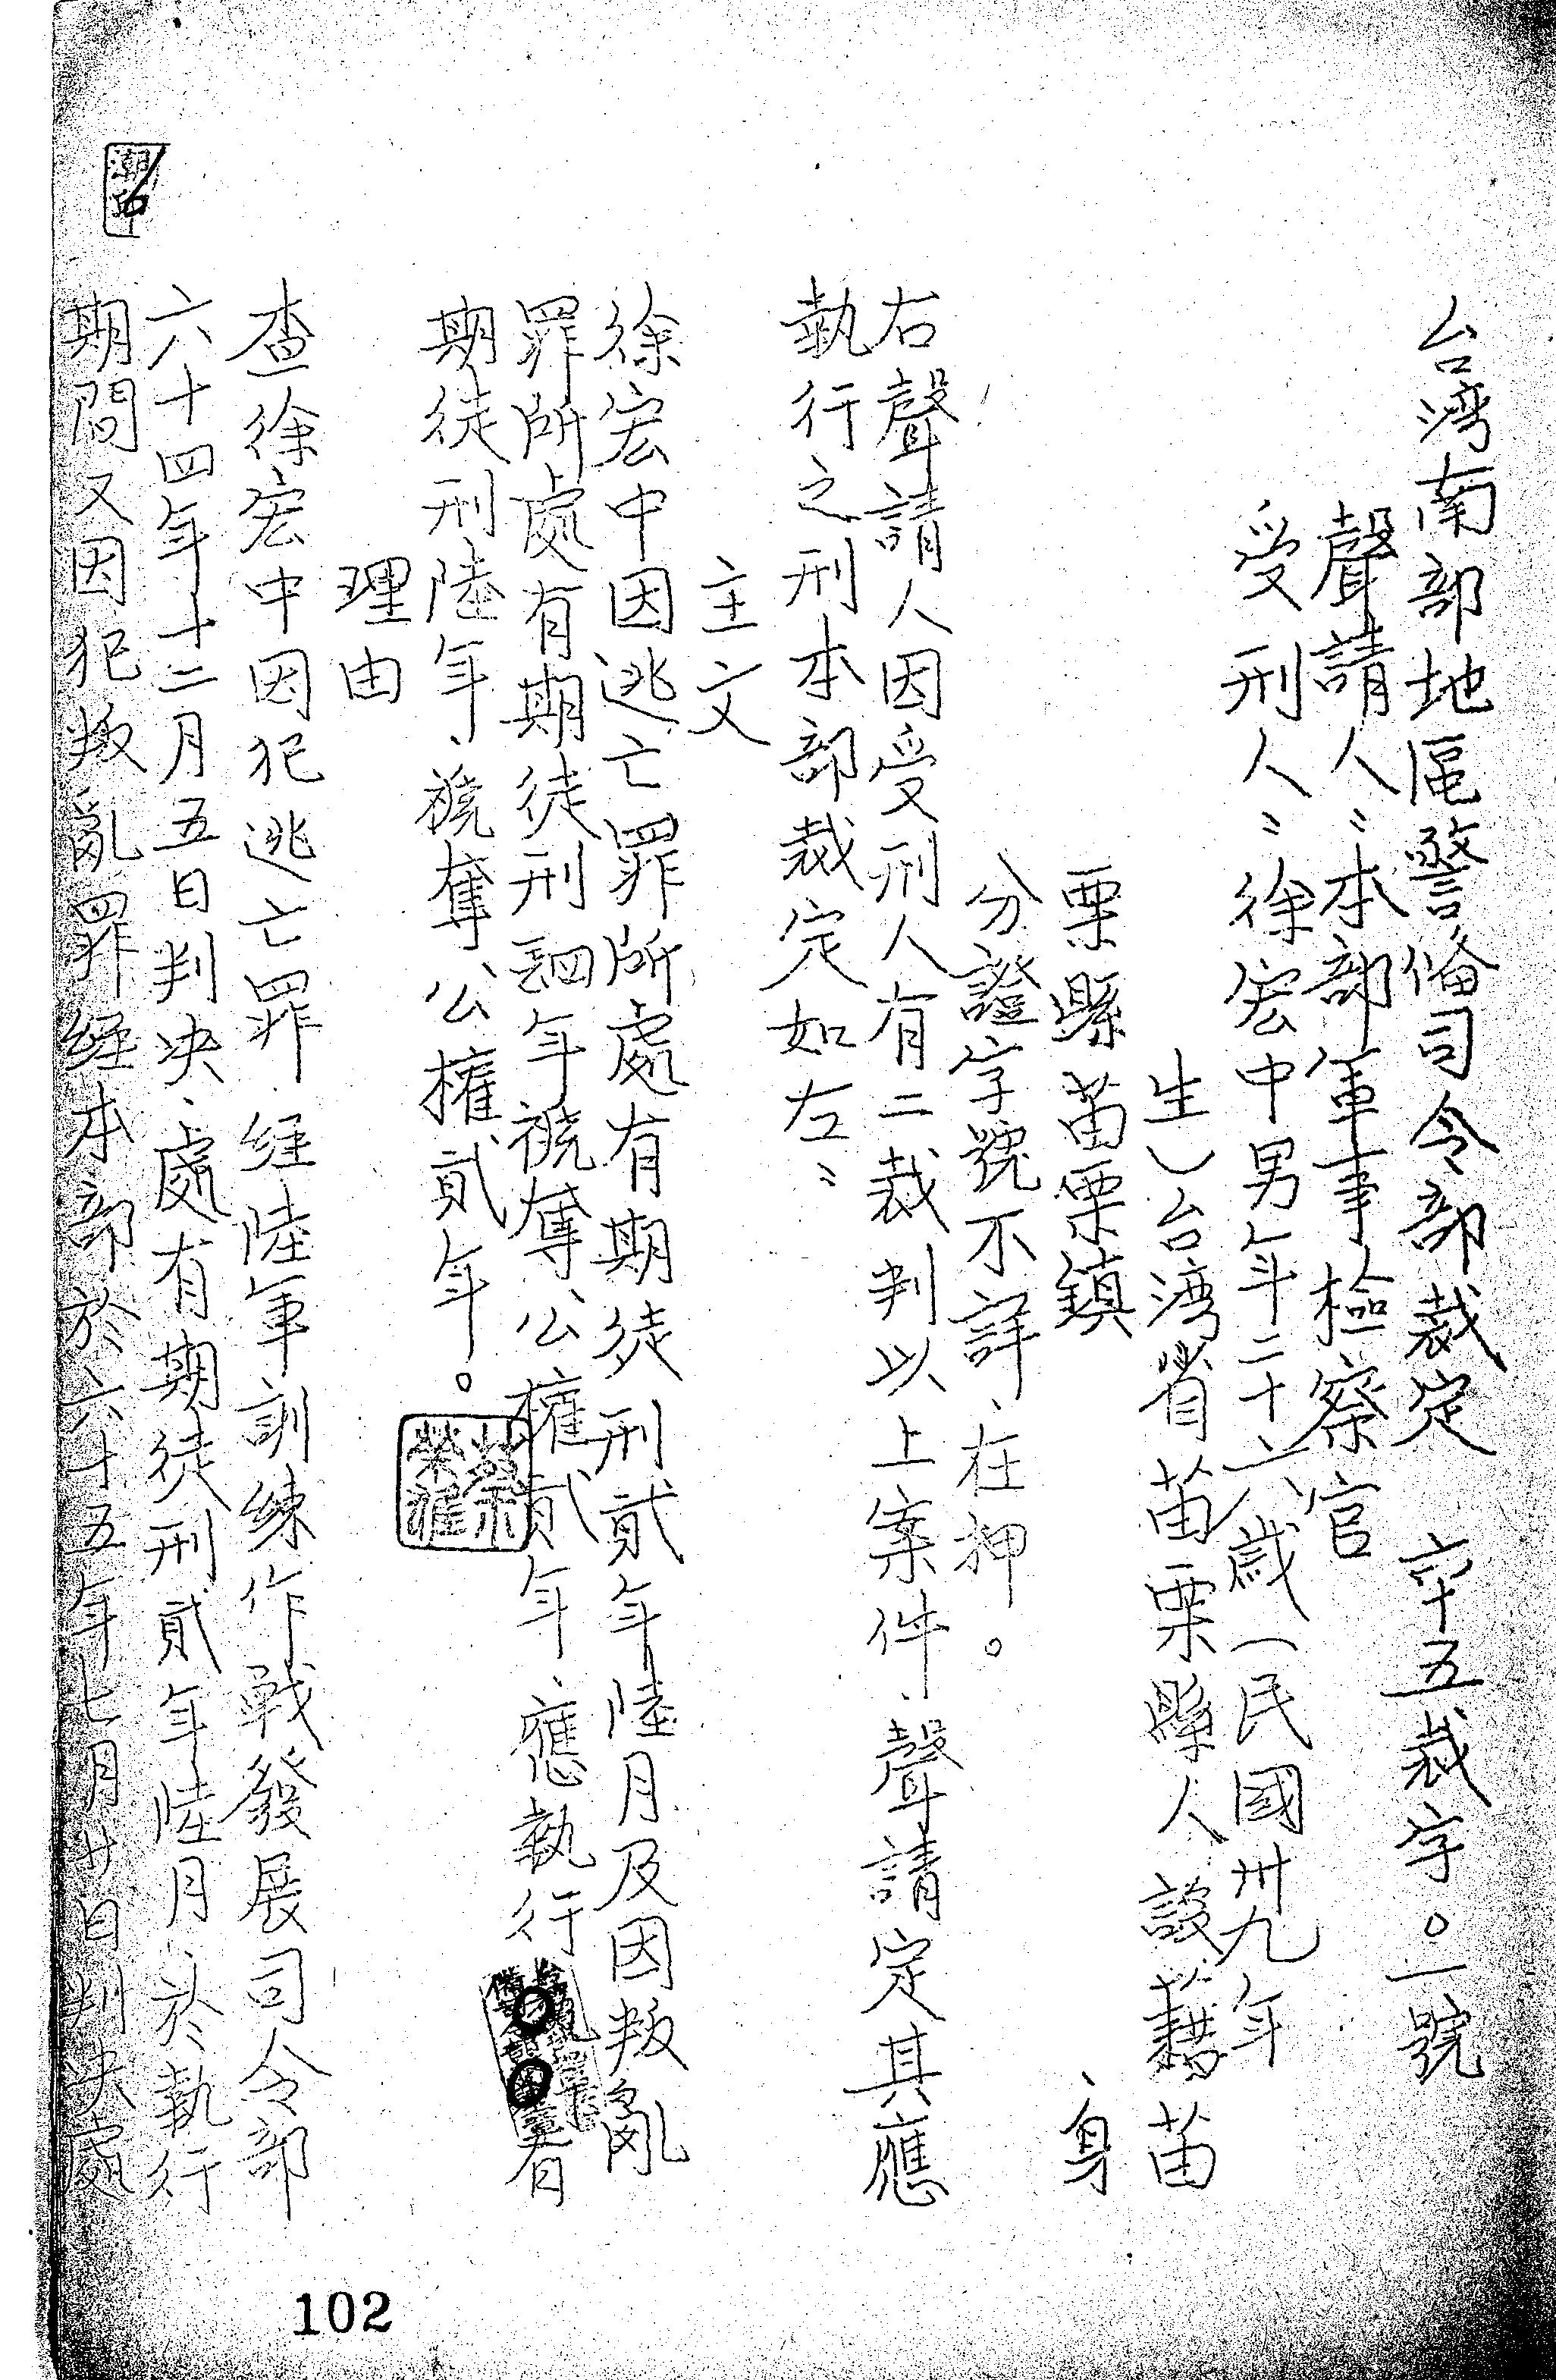 台湾南部地區警備司令部裁定　六十五裁字。一號
聲請人：本部軍事檢察官
受刑人：徐宏中男年二十六歲（民國卅九年
生）台湾省苗栗縣人設藉苗
栗縣苗栗鎮　、身
分證字號不詳、在押。
右聲請人因受刑人有二裁判以上案件、聲請定其應
執行之刑本部裁定如左：
主文
徐宏中因逃亡罪所處有期徒刑貳年陸月及因叛亂
罪所處有期徒刑肆年褫奪公權貳年、應執行有
期徒刑陸年、褫奪公權貳年。
理由
查徐宏中因犯逃亡罪、經陸軍訓練作戰發展司令部
六十四年十二月五日判决、處有期徒刑貳年陸月、於執行
期間又因犯叛亂罪經本部於六十五年七月廿日判决處
102